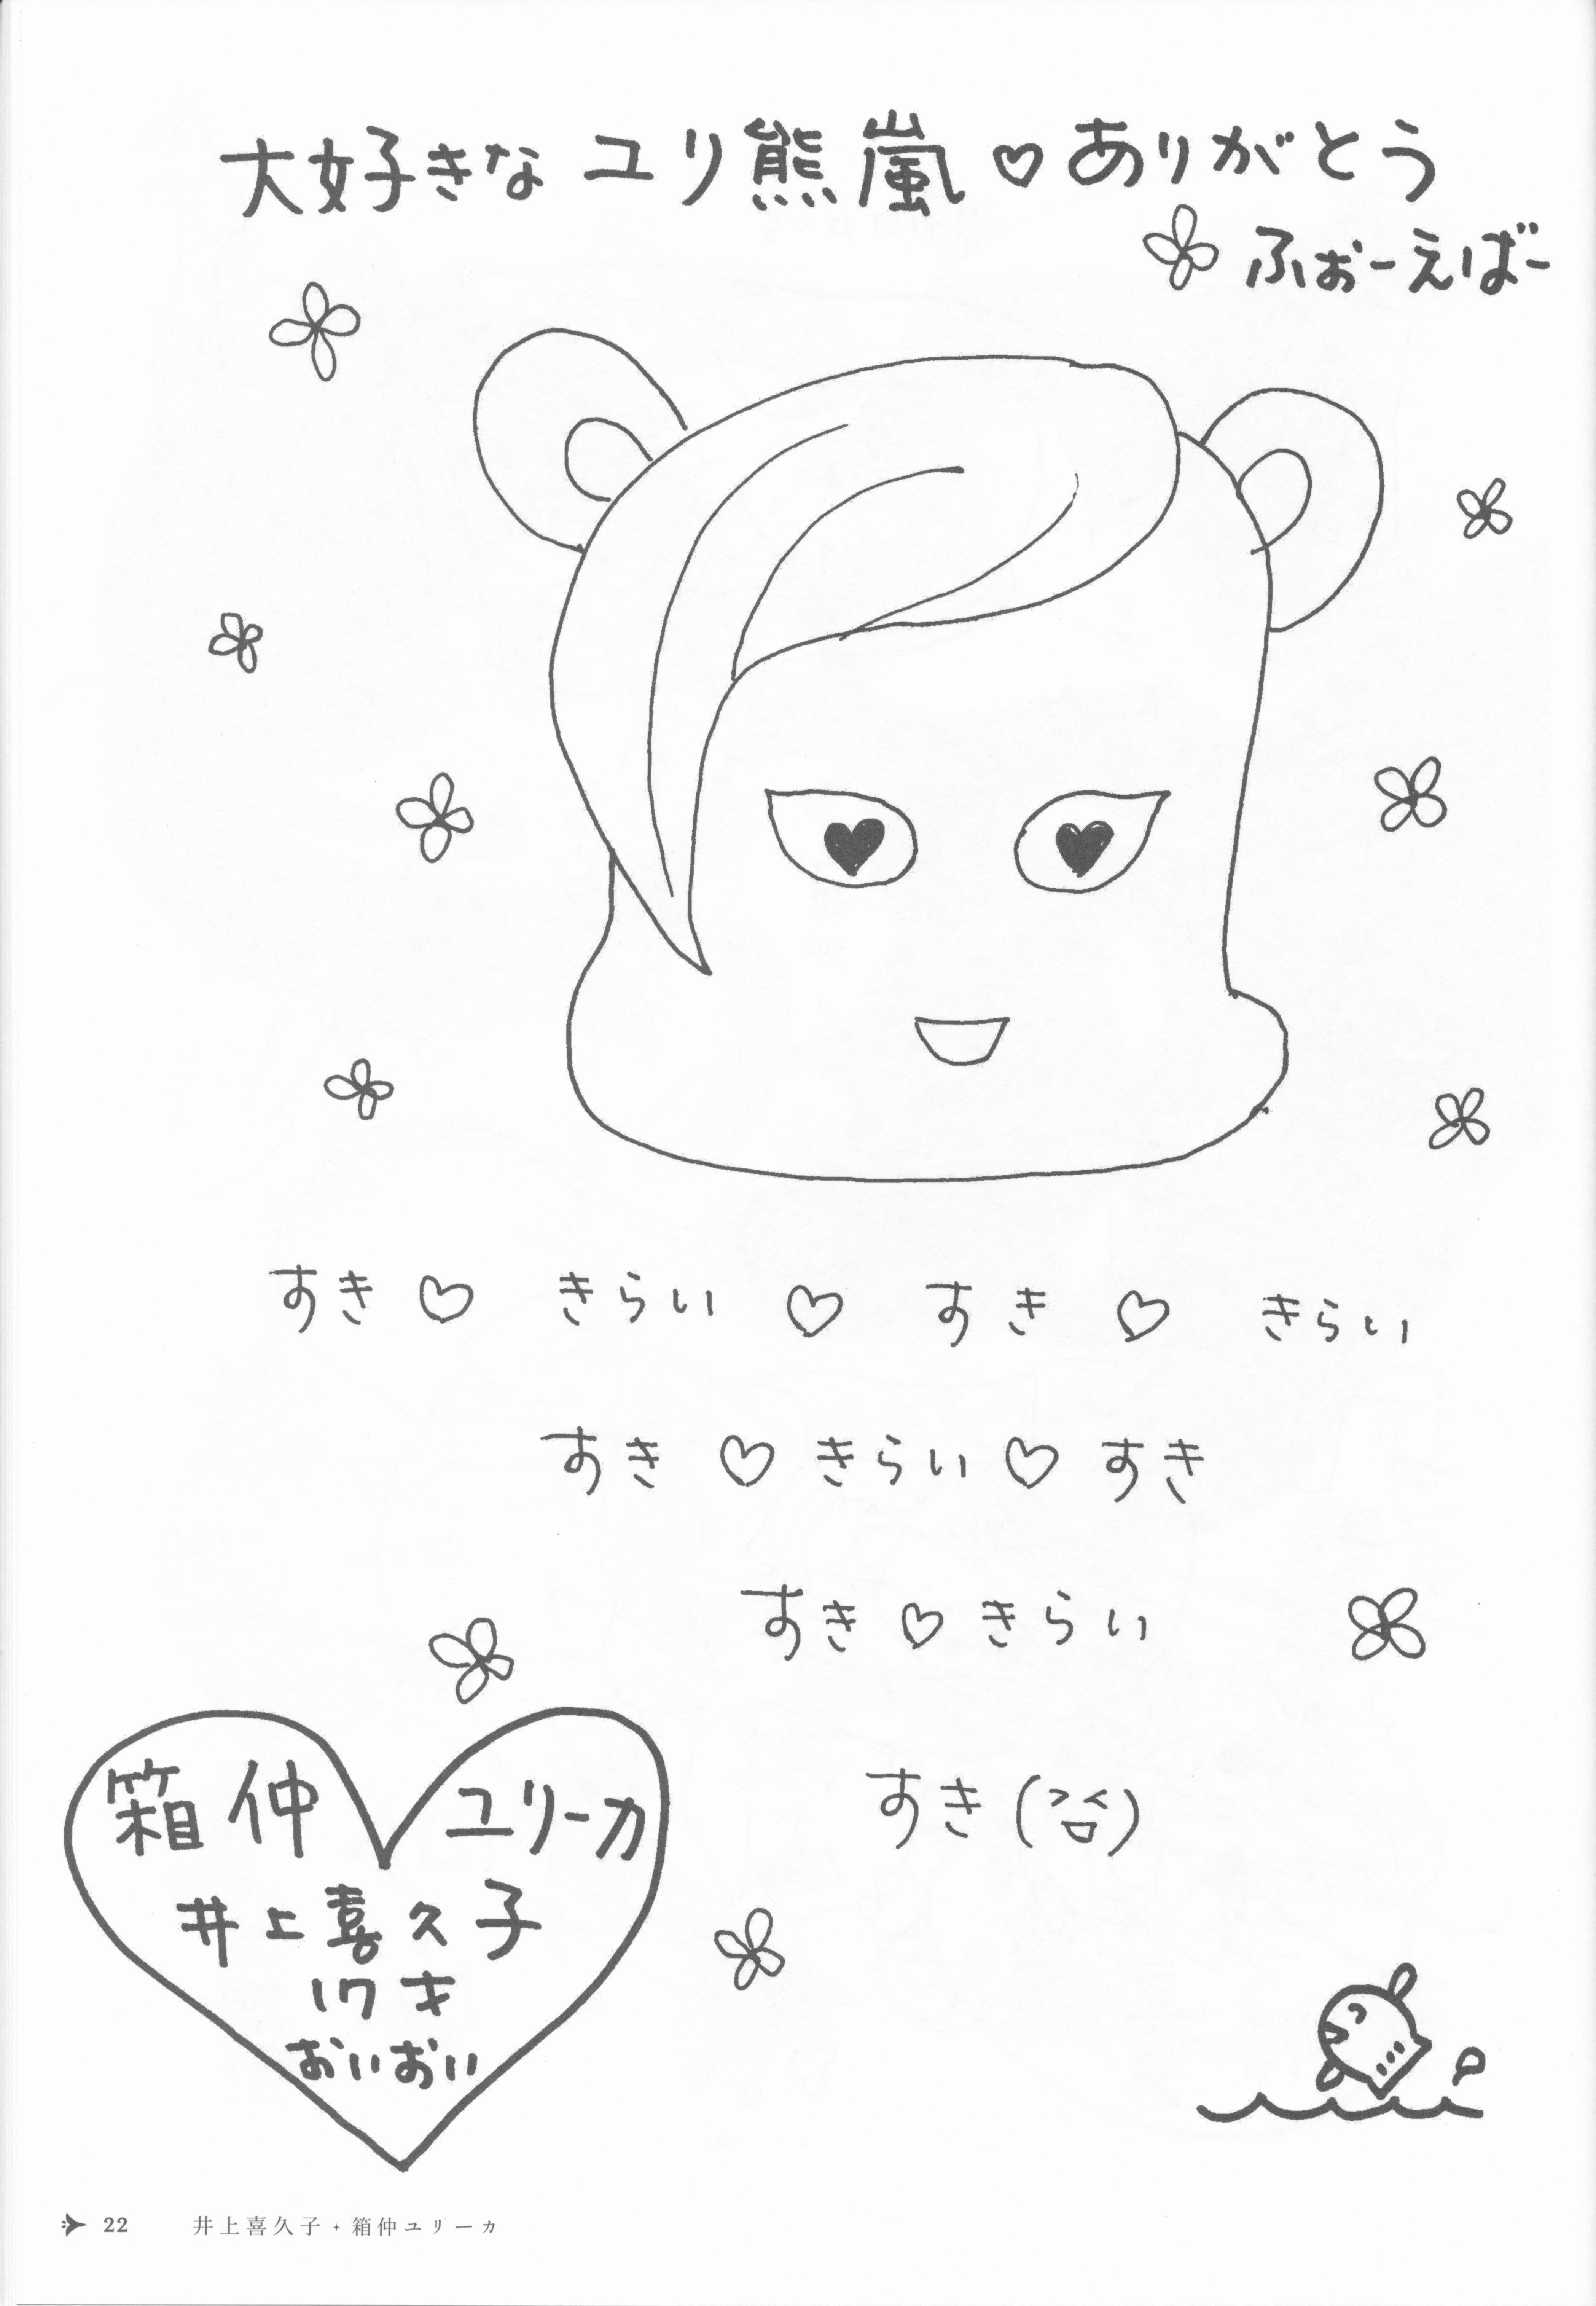 大好きな ユリ熊嵐♡ありがとう
ふぉーえばー
すき♡ きらい♡ すき♡ きらい
すき♡きらい♡すき
すき♡きらい
すき(><)
箱仲 ユリーカ
井上喜久子
17才
おいおい
22 井上喜久子・箱仲ユリーカ